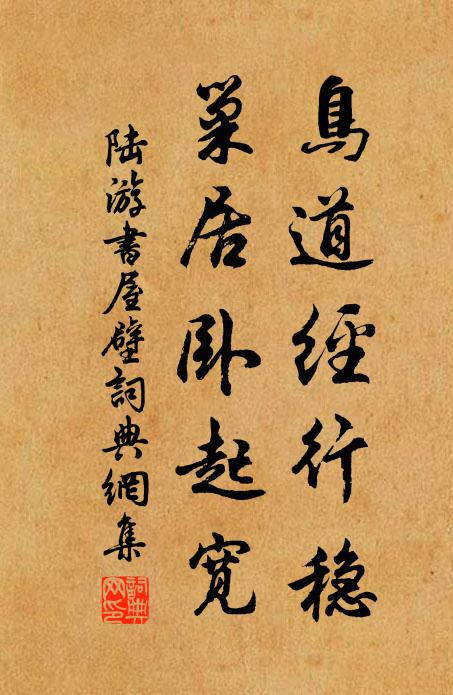 鳥道經行穩
巢居卧起寬
陸游書屋壁詞典網集
詞典網印